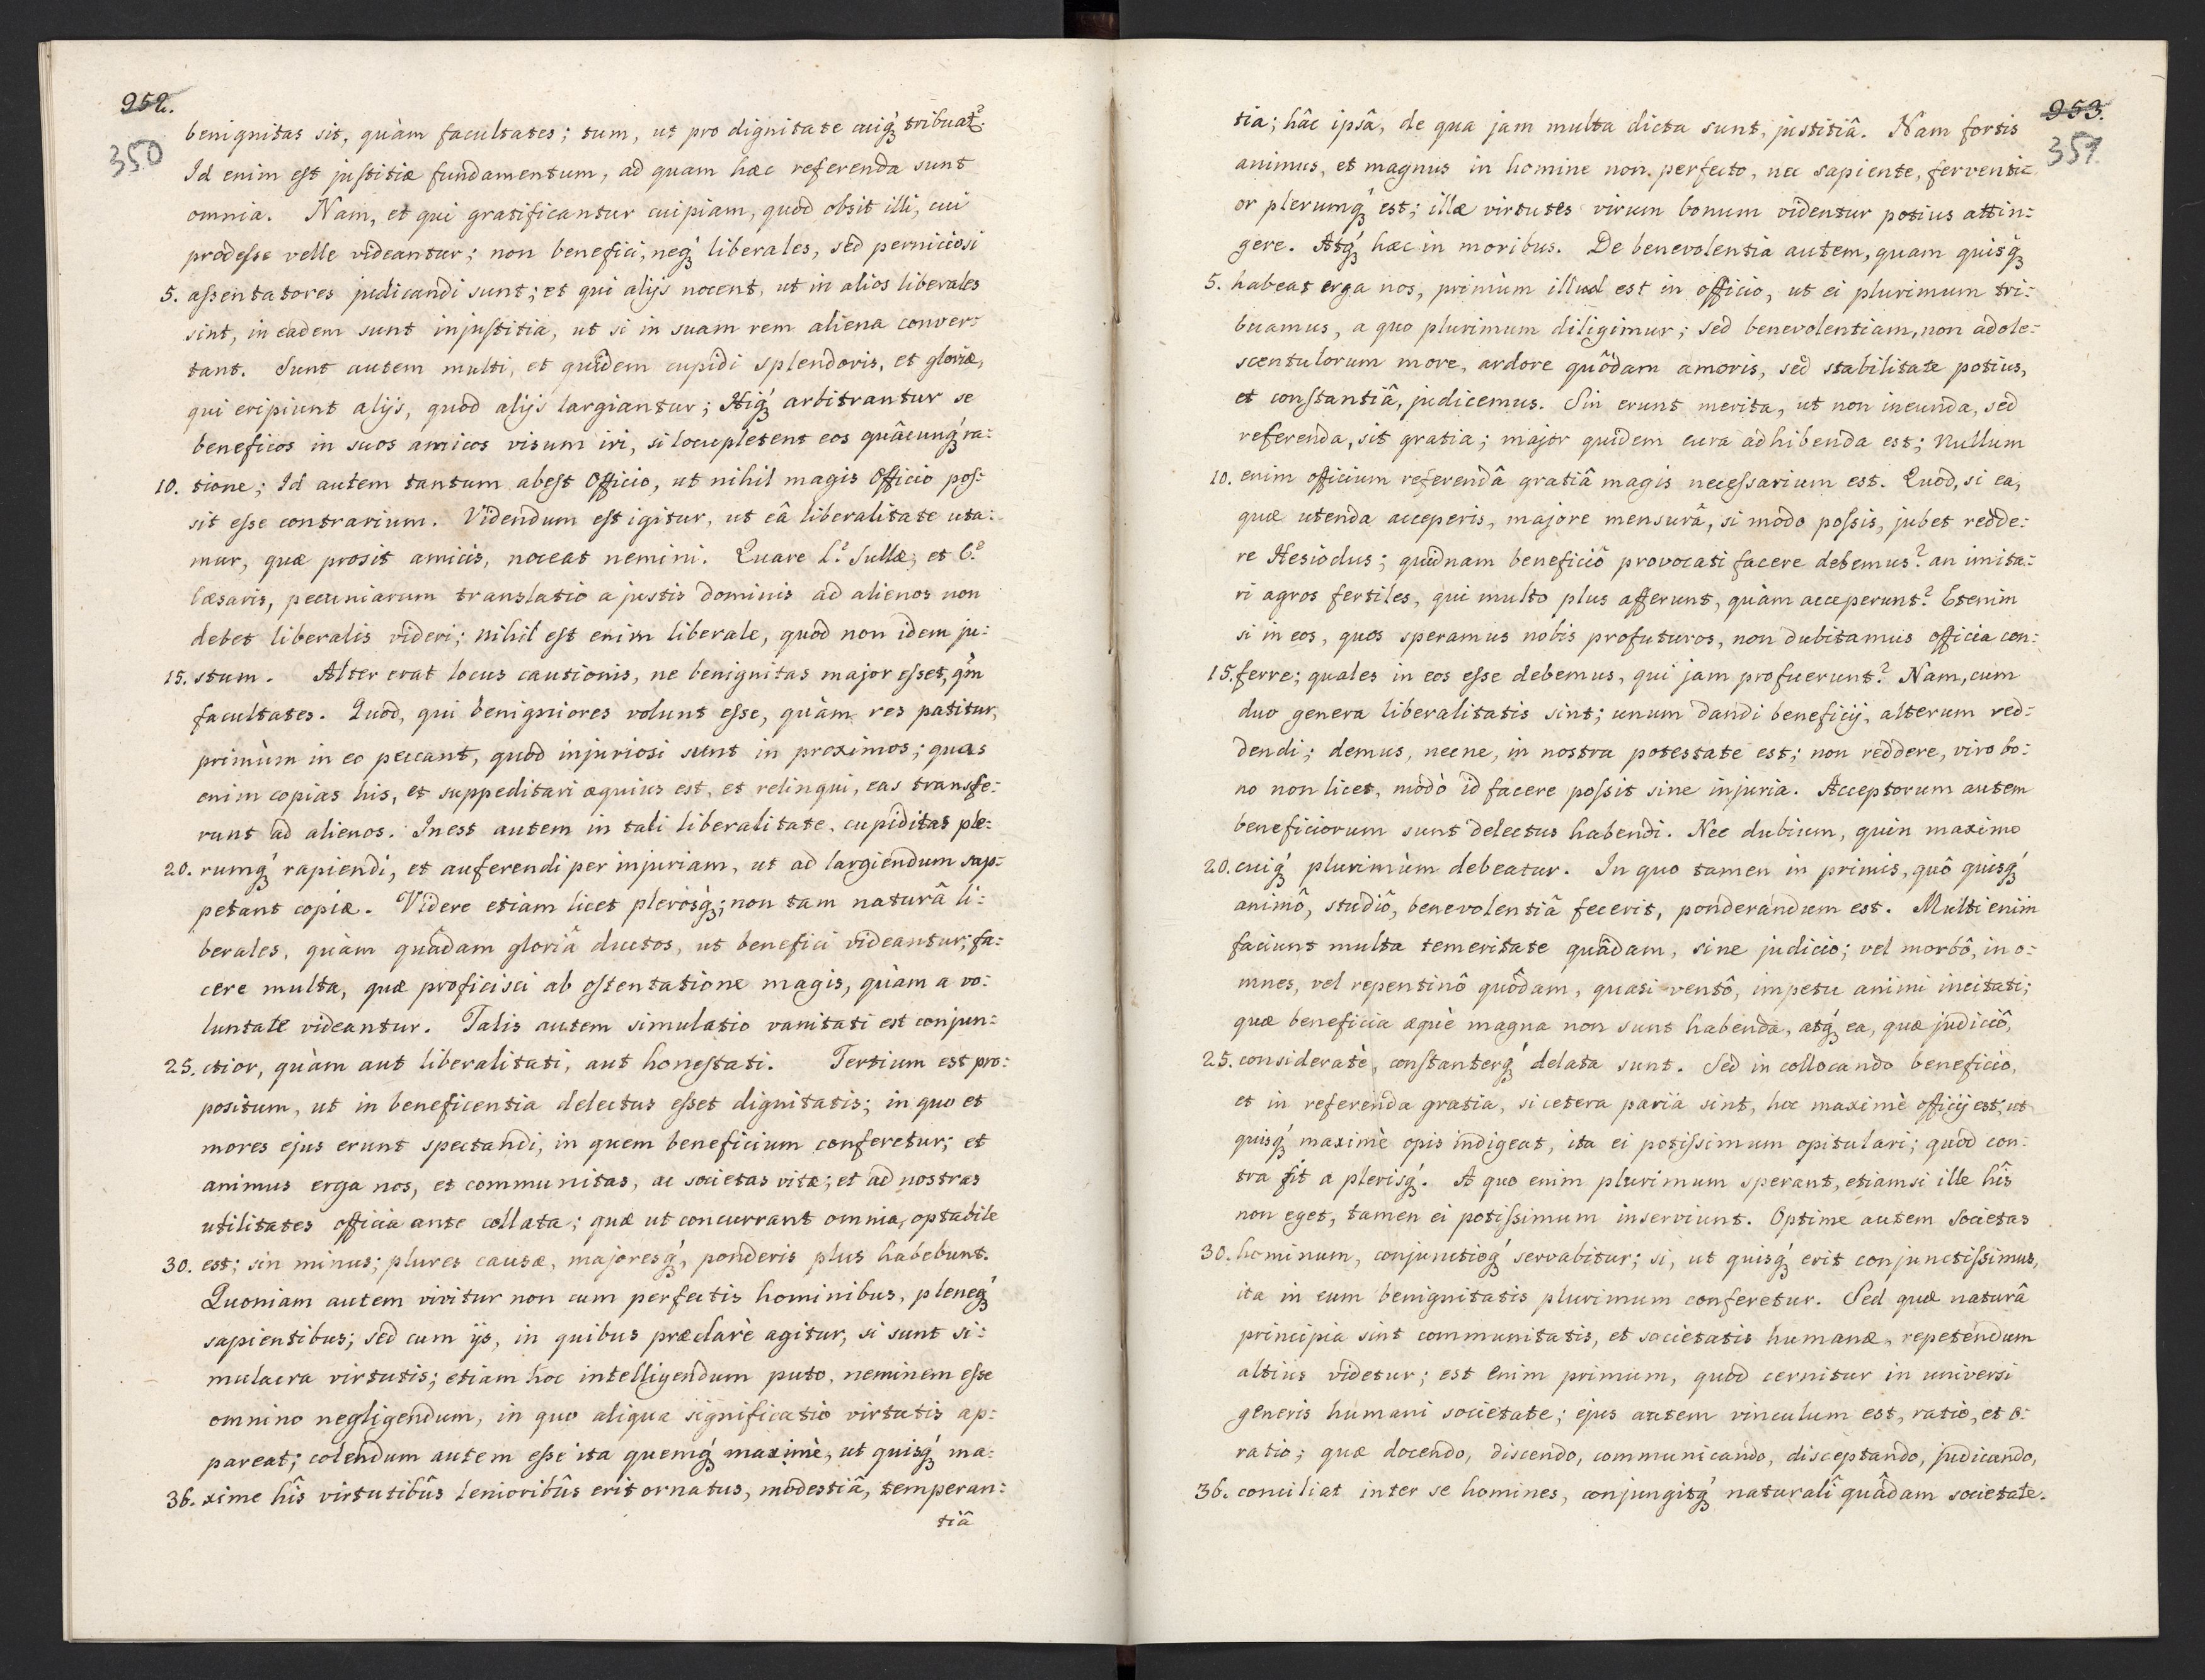 952.
350
benignitas sit, quàm facultates; tum, ut pro dignitate cuiq́ꝫ tribuat.^2
Id enim est justitiæ fundamentum, ad quam hæc referenda sunt
omnia. Nam, et qui gratificantur cuipiam, quod obsit illi, cui
prodesse velle videantur; non benefici, neq́ꝫ liberales, sed perniciosi
5. assentatores judicandi sunt; et qui alijs nocent, ut in alios liberales
sint, in eadem sunt injustitia, ut si in suam rem aliena conver:
tant. Sunt autem multi, et quidem cupidi splendoris, et gloriæ,
qui eripiunt alijs, quod alijs largiantur; Hiq́ꝫ arbitrantur se
beneficos in suos amicos visum iri, si locupletent eos quâcunq́ꝫ ra:
10. tione; Id autem tantum abest Officio, ut nihil magis Officio pos:
sit esse contrarium. Videndum est igitur, ut eâ liberalitate uta:
mur, quæ prosit amicis, noceat nemini. Quare L.^2 Sullæ, et C.^2
Cæsaris, pecuniarum translatio a justis dominis ad alienos non
debet liberalis videri; nihil est enim liberale, quod non idem ju:
15. stum. Alter erat locus cautionis, ne benignitas major esset, qm̀
facultates. Quod, qui benigniores volunt esse, quàm res patitur,
primùm in eo peccant, quod injuriosi sunt in proximos; quas
enim copias his, et suppeditari æquius est, et relinqui, eas transfe:
runt ad alienos. Inest autem in tali liberalitate, cupiditas ple:
20. rumq́ꝫ rapiendi, et auferendi per injuriam, ut ad largiendum sup:
petant copiæ. Videre etiam licet plerosq́ꝫ; non tam naturâ li:
berales, quàm quâdam gloriâ ductos, ut benefici videantur; fa:
cere multa, quæ proficisci ab ostentatione magis, quàm a vo:
luntate videantur. Talis autem simulatio vanitati est conjun:
25. ctior, quàm aut liberalitati, aut honestati. Tertium est pro:
positum, ut in beneficentia delectus esset dignitatis; in quo et
mores ejus erunt spectandi, in quem beneficium conferetur; et
animus erga nos, et communitas, ac societas vitæ; et ad nostras
utilitates officia ante collata; quæ ut concurrant omnia, optabile
30. est; sin minus; plures causæ, majoresq́ꝫ, ponderis plus habebunt.
Quoniam autem vivitur non cum perfectis hominibus, pleneq́ꝫ
sapientibus; sed cum ijs, in quibus præclarè agitur, si sunt si:
mulacra virtutis; etiam hoc intelligendum puto, neminem esse
omnino negligendum, in quo aliqua significatio virtutis ap:
pareat; colendum autem esse ita quemq́ꝫ maximè, ut quisq́ꝫ ma:
36. xime hîs virtutibûs lenioribûs erit ornatus, modestiâ, temperan:
tiâ
953.
351
tia; hâc ipsâ, de qua jam multa dicta sunt, justitiâ. Nam fortis
animus, et magnus in homine non perfecto, nec sapiente, ferventi:
or plerumq́ꝫ est; illæ virtutes virum bonum videntur potius attin:
gere. Atq́ꝫ hæc in moribus. De benevolentia autem, quam quisq́ꝫ
5. habeat erga nos, primùm illud est in officio, ut ei plurimum tri:
buamus, a quo plurimum diligimur; sed benevolentiam, non adole:
scentulorum more, ardore quôdam amoris, sed stabilitate potius,
et constantiâ, judicemus. Sin erunt merita, ut non ineunda, sed
referenda, sit gratia; major quidem cura adhibenda est; Nullum
10. enim officium referendâ gratiâ magis necessarium est. Quod, si ea,
quæ utenda acceperis, majore mensurâ, si modo possis, jubet redde:
re Hesiodus; quidnam beneficiô provocati facere debemus? an imita:
ri agros fertiles, qui multo plus afferunt, quàm acceperunt? Etenim
si in eos, quos speramus nobis profuturos, non dubitamus officia con:
15. ferre; quales in eos esse debemus, qui jam profuerunt? Nam, cum
duo genera liberalitatis sint; unum dandi beneficij, alterum red:
dendi; demus, necne, in nostra potestate est; non reddere, viro bo:
no non licet, modò id facere possit sine injuria. Acceptorum autem
beneficiorum sunt delectus habendi. Nec dubium, quin maximo
20. cuiq́ꝫ plurimùm debeatur. In quo tamen in primis, quô quisq́ꝫ
animô, studiô, benevolentiâ fecerit, ponderandum est. Multi enim
faciunt multa temeritate quâdam, sine judicio; vel morbô, in o:
mnes, vel repentinô quôdam, quasi ventô, impetu animi incitati;
quæ beneficia æquè magna non sunt habenda, atq́ꝫ ea, quæ judiciô,
25. consideratè, constanterq́ꝫ delata sunt. Sed in collocando beneficio,
et in referenda gratia, si cetera paria sint, hoc maximè officij est, ut
quisq́ꝫ maximè opis indigeat, ita ei potissimum opitulari; quod con:
tra fit a plerisq́ꝫ. A quo enim plurimum sperant, etiamsi ille hîs
non eget, tamen ei potissimum inserviunt. Optime autem societas
30. hominum, conjunctioq́ꝫ servabitur; si, ut quisq́ꝫ erit conjunctissimus,
ita in eum benignitatis plurimum conferetur. Sed quæ naturâ
principia sint communitatis, et societatis humanæ, repetendum
altius videtur; est enim primum, quod cernitur in universi
generis humani societate; ejus autem vinculum est, ratio, et o:
ratio; quæ docendo, discendo, communicando, disceptando, judicando,
36. conciliat inter se homines, conjungitq́ꝫ naturalî quâdam societate.